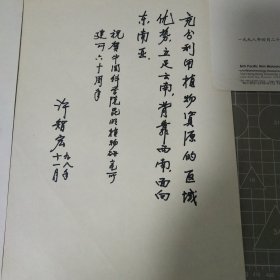 充分利用植物資源的区域
优势，立足云南，背靠西南，面向
东南亚。
祝贺中国科学院昆明植物研究所
建所六十周年
许智宏
一九九八年
十一月
一九九八年四月二十